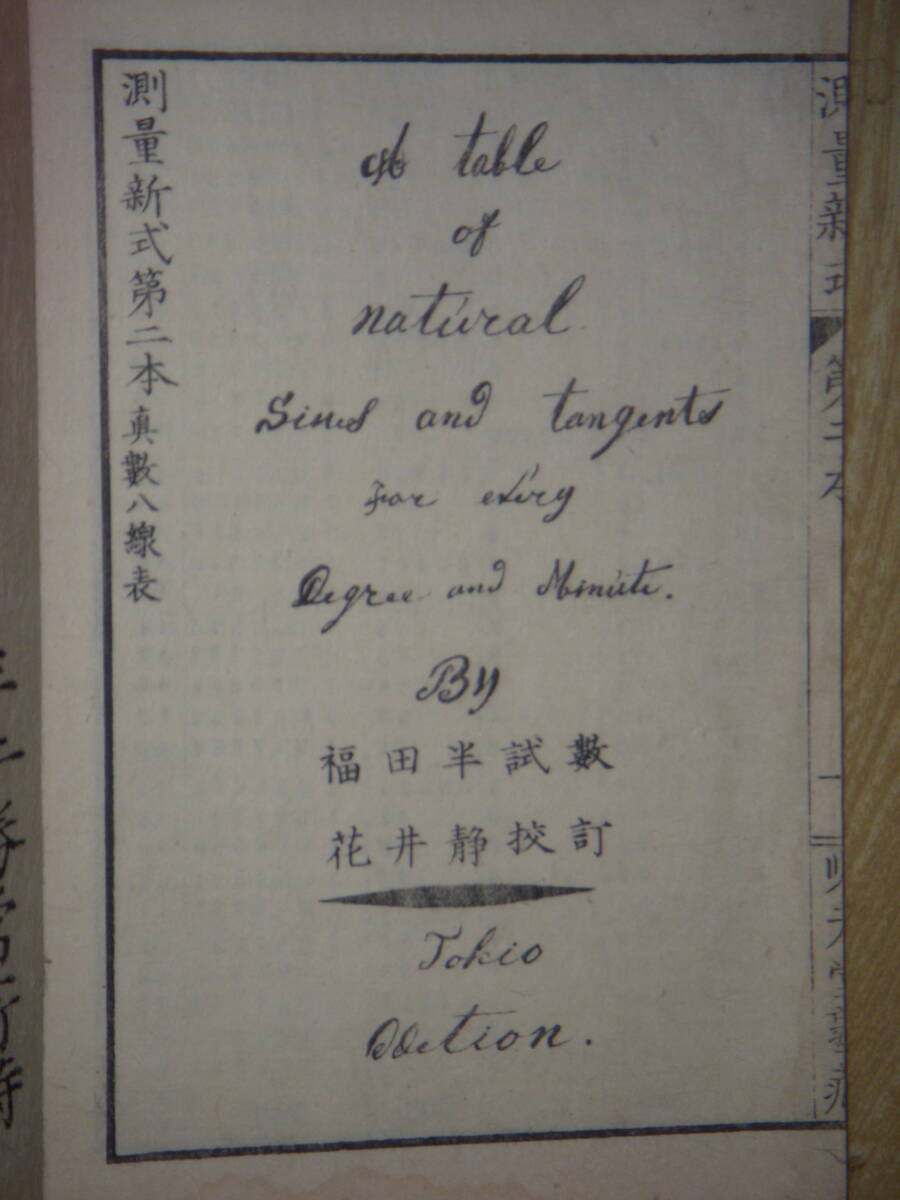 測量新式第二本 真數八線表
A table
of
natural
Sines and tangents
For every
Degree and Minute.
By
福田半試數
花井静挍訂
Tokio
Edetion.
測量新式
第二本
一